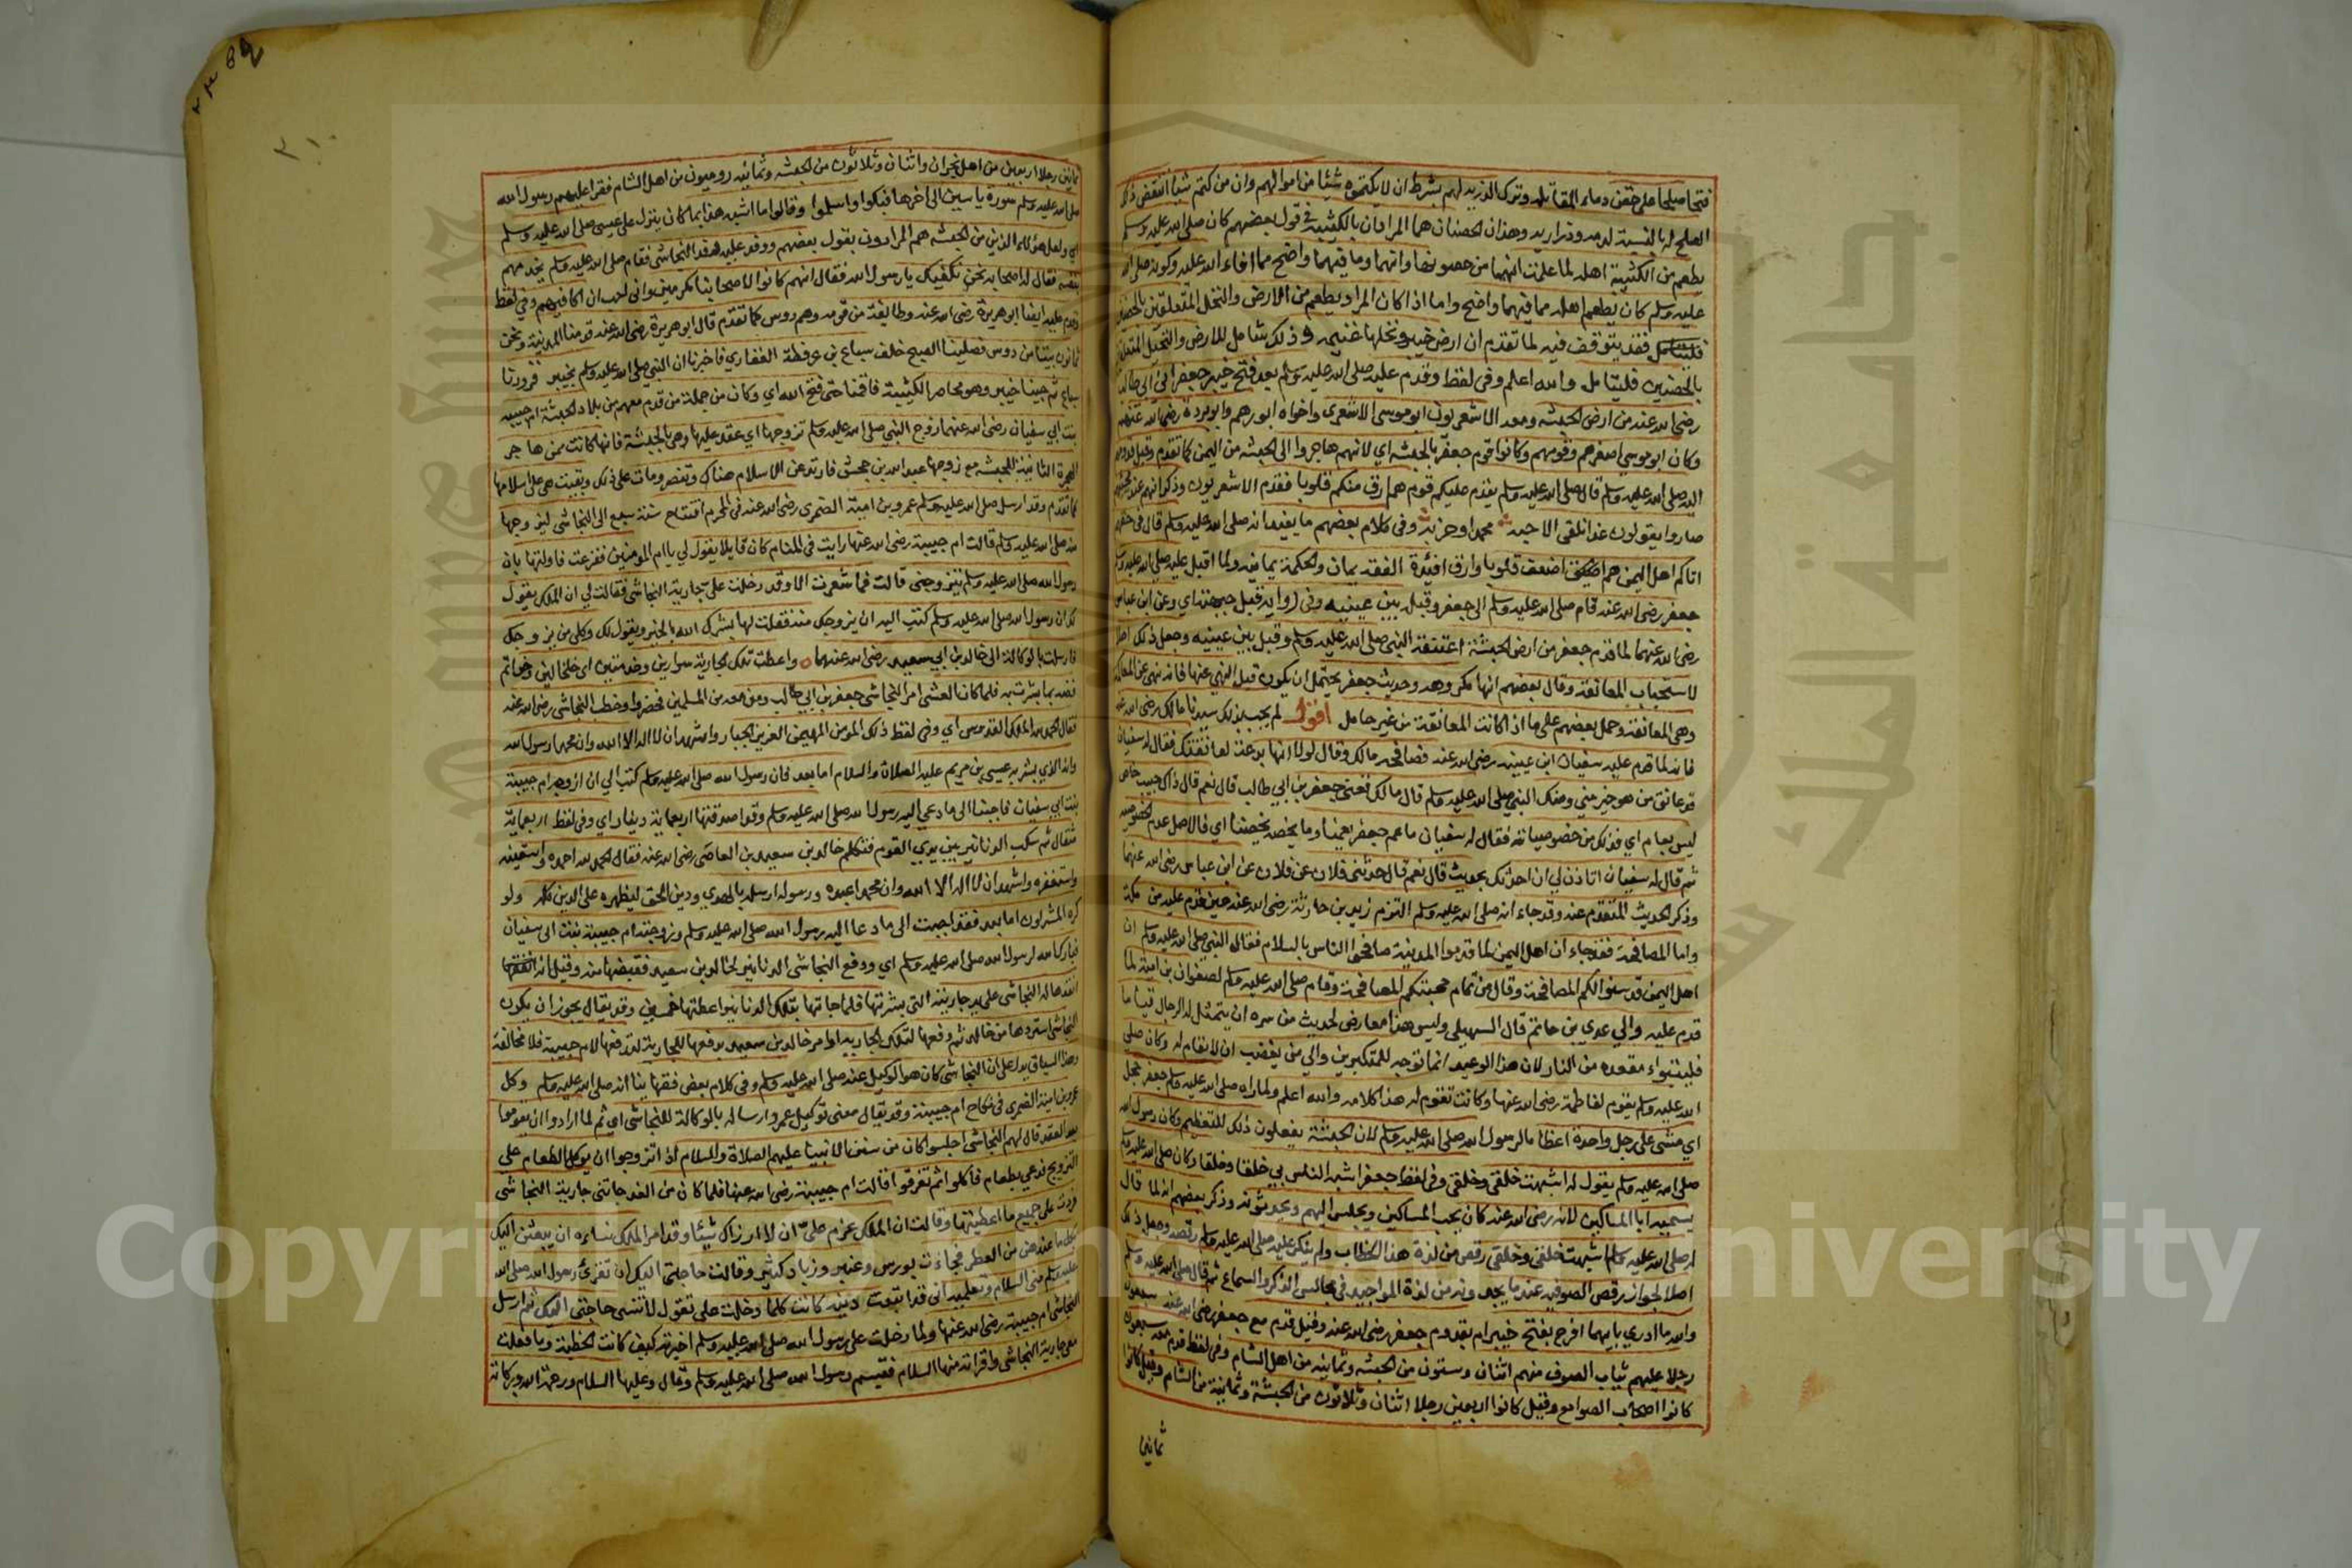 فتحا صلحا على حقن دماء المقاتلة وترك الذرية لهم بشرط ان لا يكتموه شيئا من اموالهم وان من كتم شيئا انتقض ذلك
الصلح له بالنسبة لدمه وذراريه وهذان الحصنان هما المرادان بالكثيبة في قول بعضهم كان صلى الله عليه وسلم
يطعم من الكثيبة اهله لما علمت انهما من حصونها وانهما وما فيهما واضح مما افاء الله عليه وكونه صلى الله
عليه وسلم كان يطعم اهله مما فيهما واضح واما اذا كان المراد يطعم من الارض والنخل المتعلقين بالحصنين
فليتامل فقد يتوقف فيه لما تقدم ان ارض خيبر ونخلها غنيمة وذلك شامل للارض والنخيل المتعلق
بالحصنين فليتامل والله اعلم وفي لفظ وقدم عليه صلى الله عليه وسلم بعد فتح خيبر جعفر ابن ابي طالب
رضي الله عنه من ارض الحبشه ومعه الاشعريون ابو موسى الاشعري واخواه ابو رهم وابو بردة رضي الله عنهم
وكان ابو موسى اصغرهم وقومهم وكانوا قوم جعفر بالحبشه اي لانهم هاجروا الى الحبشه من اليمن كما تقدم وقبل قدومهم
الله صلى الله عليه وسلم قال صلى الله عليه وسلم يقدم عليكم قوم هم ارق منكم قلوبا فقدم الاشعريون وذكر انهم عند مجيئهم
صاروا يقولون غدا نلقى الاحبه محمدا وحزبه وفي كلام بعضهم ما يفيد انه صلى الله عليه وسلم قال في حقهم
اتاكم اهل اليمن هم اضعف قلوبا وارق افئدة الفقه يمان والحكمة يمانيه ولما اقبل عليه صلى الله عليه وسلم
جعفر رضي الله عنه قام صلى الله عليه وسلم الى جعفر وقبل بين عينيه وفي رواية قبل جبهته اي وعن ابن عباس
رضي الله عنهما لما قدم جعفر من ارض الحبشة اعتنقه النبي صلى الله عليه وسلم وقبل بين عينيه وجعل ذلك اصلا
لاستحباب المعانقة وقال بعضهم انها مكروهه وحديث جعفر يحتمل ان يكون قبل النهي عنها فانه نهى عن المعاكمة
وهي المعانقة وحمل بعضهم على ما اذا كانت المعانقة من غير حامل اقول لم يجب بذلك سيدنا مالك رضي الله عنه
فانه لما قدم عليه سفيان ابن عيينه رضي الله عنه فصافحه مالك وقال لولا انها بدعة لعانقتك فقال له سفيان
قد عانق من هو خير مني ومنك النبي صلى الله عليه وسلم قال مالك تعني جعفر بن ابي طالب قال نعم قال ذاك حديث خاص
ليس بعام اي فذلك من خصوصياته فقال له سفيان ما عم جعفر يعمنا وما يخصه يخصنا اي فالاصل عدم الخصوصيه
ثم قال له سفيان اتاذن لي ان احدثك بحديث قال نعم قال حدثني فلان عن فلان عن ابن عباس رضي الله عنهما
وذكر الحديث المتقدم عنه وقد جاء انه صلى الله عليه وسلم التزم زيد بن حارثة رضي الله عنه حين قدم عليه من مكة
واما المصافحة فقد جاء ان اهل اليمن لما قدموا المدينة صافحوا الناس بالسلام فقال النبي صلى الله عليه وسلم ان
اهل اليمن قد سنوا لكم المصافحة وقال من تمام محبتكم المصافحة وقام صلى الله عليه وسلم لصفوان بن امية لما
قدم عليه والى عدي بن حاتم قال السهيلي وليس هذا معارض لحديث من سره ان يتمثل له الرجال قياما
فليتبواء مقعده من النار لان هذا الوعيد انما توجه للمتكبرين والى من يغضب ان لا يقام له وكان صلى
الله عليه وسلم يقوم لفاطمة رضي الله عنها وكانت تقوم له هذا كلامه والله اعلم ولما راه صلى الله عليه وسلم جعفر حجل
اي مشى على رجل واحدة اعظاما لرسول الله صلى الله عليه وسلم لان الحبشة يفعلون ذلك للتعظيم وكان رسول الله
صلى الله عليه وسلم يقول له اشبهت خلقي وخلقي وفي لفظ جعفر اشبه الناس بي خلقا وخلقا وكان صلى الله عليه وسلم
يسميه ابا المساكين لانه رضي الله عنه كان يحب المساكين ويجلس اليهم ويحدثونه وذكر بعضهم انه لما قال
له صلى الله عليه وسلم اشبهت خلقي وخلقي رقص من لذة هذا الخطاب ولم ينكر عليه صلى الله عليه وسلم رقصه وجعل ذلك
اصلا لجواز رقص الصوفيه عند ما يجدونه من لذة المواجيد في مجالس الذكر والسماع ثم قال صلى الله عليه وسلم
والله ما ادري بايهما افرح بفتح خيبر ام بقدوم جعفر رضي الله عنه وقيل قدم مع جعفر رضي الله عنه سبعون
رجلا عليهم ثياب الصوف منهم اثنان وستون من الحبشه وثمانيه من اهل الشام وفي لفظ قدم معه سبعون
كانوا اصحاب الصوامع وقيل كانوا اربعين رجلا اثنان وثلاثون من الحبشة وثمانية من الشام وقيل كانوا
ثمانين
٢١٠
ثمانين رجلا اربعين من اهل نجران واثنان وثلاثون من الحبشه وثمانيه روميون من اهل الشام فقرا عليهم رسول الله
صلى الله عليه وسلم سورة ياسين الى اخرها فبكوا واسلموا وقالوا ما اشبه هذا بما كان ينزل على عيسى صلى الله عليه وسلم
اي ولعل هؤلاء الذين من الحبشه هم المرادون بقول بعضهم ووفد عليه وفد النجاشي فقام صلى الله عليه وسلم يخدمهم
بنفسه فقال له اصحابه نحن نكفيك يا رسول الله فقال انهم كانوا لاصحابنا مكرمين واني احب ان اكافيهم وفي لفظ
وقدم عليه ايضا ابو هريرة رضي الله عنه وطايفة من قومه وهم دوس كما تقدم قال ابو هريرة رضي الله عنه قدمنا المدينة ونحن
ثمانون بيتا من دوس فصلينا الصبح خلف سباع بن عرفطة الغفاري فاخبرنا ان النبي صلى الله عليه وسلم بخيبر فزودنا
سباع ثم جينا خيبر وهو محاصر الكثيبة فاقمنا حتى فتح الله اي وكان من جملة من قدم معهم من بلاد الحبشة ام حبيبه
بنت ابي سفيان رضي الله عنهما زوج النبي صلى الله عليه وسلم تزوجها اي عقد عليها وهي بالحبشة فانها كانت ممن هاجر
الهجرة الثانية للحبشه مع زوجها عبد الله بن جحش فارتد عن الاسلام هناك وتنصر ومات على ذلك وبقيت هي على اسلامها
كما تقدم وقد ارسل صلى الله عليه وسلم عمرو بن امية الضمري رضي الله عنه في المحرم افتتاح سنة سبع الى النجاشي ليزوجها
منه صلى الله عليه وسلم قالت ام حبيبة رضي الله عنها رايت في المنام كان قايلا يقول لي يا ام المومنين ففزعت فاولتها بان
رسول الله صلى الله عليه وسلم يتزوجني قالت فما شعرت الا وقد دخلت علي جارية النجاشي فقالت لي ان الملك يقول
لك ان رسول الله صلى الله عليه وسلم كتب اليه ان يزوجك منه فقلت لها بشرك الله بالخير ويقول لك وكلي من يزوجك
فارسلت بالوكالة الى خالد بن ابي سعيد رضي الله عنهما واعطت تلك الجارية سوارين وخدمتين اي خلخالين وخواتم
فضه بما بشرت به فلما كان العشي امر النجاشي جعفر بن ابي طالب ومن معه من المسلمين فحضروا وخطب النجاشي رضي الله عنه
فقال الحمد لله الملك القدوس اي وفي لفظ ذلك المومن المهيمن العزيز الجبار واشهد ان لا اله الا الله وان محمدا رسول الله
وانه الذي بشر به عيسى بن مريم عليه الصلاة والسلام اما بعد فان رسول الله صلى الله عليه وسلم كتب الي ان ازوجه ام حبيبة
بنت ابي سفيان فاجبنا الى ما دعي اليه رسول الله صلى الله عليه وسلم وقد اصدقتها اربعماية دينار اي وفي لفظ اربعماية
مثقال ثم سكب الدنانير بين يدي القوم فتكلم خالد بن سعيد بن العاصي رضي الله عنه فقال الحمد لله احمده واستعينه
واستغفره واشهد ان لا اله الا الله وان محمدا عبده ورسوله ارسله بالهدي ودين الحق ليظهره على الدين كله ولو
كره المشركون اما بعد فقد اجبت الى ما دعا اليه رسول الله صلى الله عليه وسلم وزوجته ام حبيبة بنت ابي سفيان
فبارك الله لرسول الله صلى الله عليه وسلم اي ودفع النجاشي الدنانير لخالد بن سعيد فقبضها منه وقيل انه انفقها
انفذها له النجاشي على يد جاريته التي بشرتها فلما جاتها بتلك الدنانير اعطتها خمسين وقد يقال يجوز ان يكون
النجاشي استردها من خالد ثم دفعها لتلك الجاريه او امر خالد بن سعيد بدفعها للجارية لتدفعها لام حبيبة فلا مخالفة
وهذا السياق يدل على ان النجاشي كان هو الوكيل عنه صلى الله عليه وسلم وفي كلام بعض فقهاينا انه صلى الله عليه وسلم وكل
عمرو بن امية الضمري في نكاح ام حبيبة وقد يقال معنى توكيل عمرو ارساله بالوكالة للنجاشي اي ثم لما ارادوا ان يقوموا
بعد العقد قال لهم النجاشي اجلسوا كان من سنة الانبيا عليهم الصلاة والسلام اذا تزوجوا ان يوكل الطعام على
التزويج فدعي بطعام فاكلوا ثم تفرقوا قالت ام حبيبة رضي الله عنها فلما كان من الغد جاتني جارية النجاشي
فردت علي جميع ما اعطيتها وقالت ان الملك عزم علي ان لا ارزاك شيئا وقد امر الملك نساءه ان يبعثن اليك
بكل ما عندهن من العطر فجاءت بورس وعنبر وزباد كثير وقالت حاجتي اليك ان تقرئ رسول الله صلى الله
عليه وسلم مني السلام وتعلميه اني قد اتبعت دينه كانت كلما دخلت علي تقول لا تنسي حاجتي اليك ثم ارسل
النجاشي ام حبيبة رضي الله عنها ولما دخلت على رسول الله صلى الله عليه وسلم اخبرته كيف كانت الخطبة وما فعلت
معي جارية النجاشي واقراته منها السلام فتبسم رسول الله صلى الله عليه وسلم وقال وعليها السلام ورحمة الله وبركاته
جامعة الملك سعود
Copyright © King Saud University